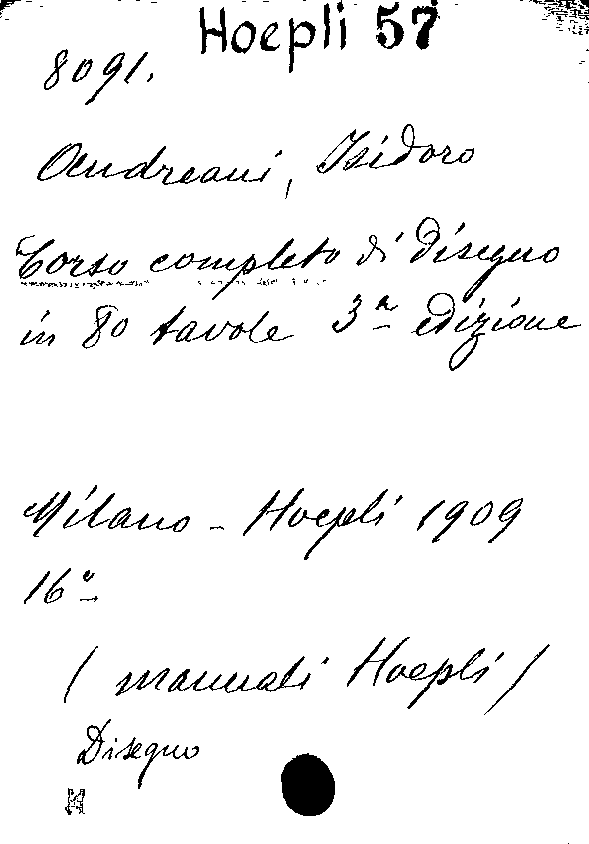 Hoepli 57
8091.
Andreani, Isidoro
Corso completo di disegno
in 80 tavole 3ª edizione
Milano - Hoepli 1909
16º
( manuali Hoepli )
Disegno